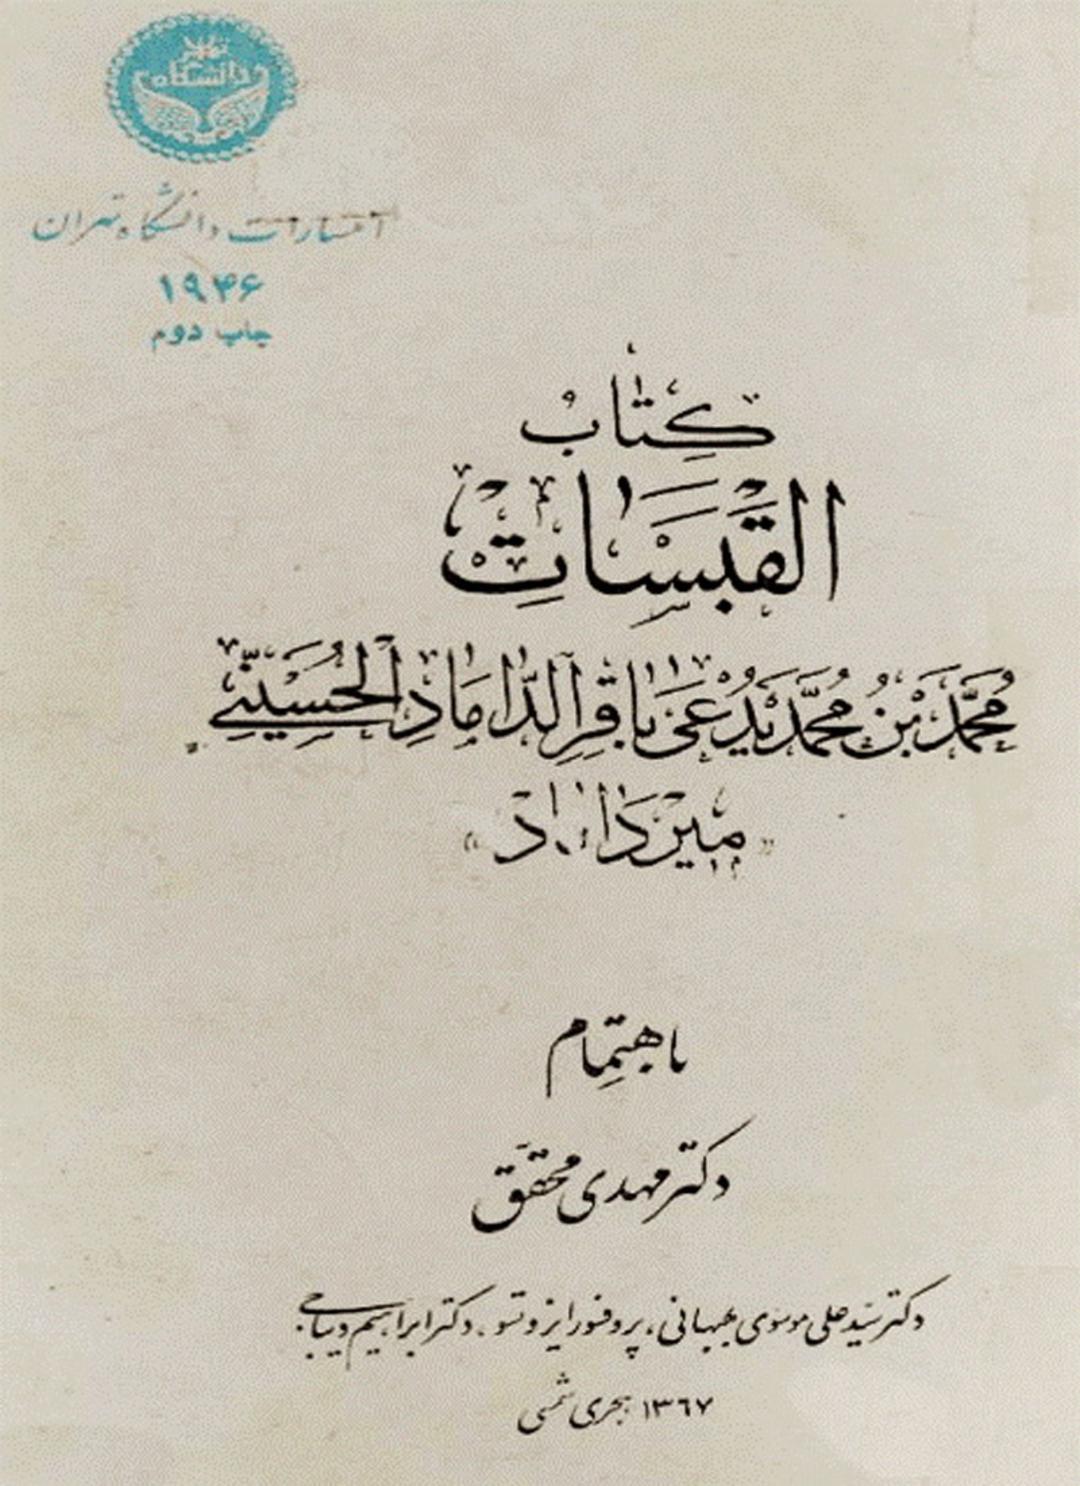 دانشگاه تهران
انتشارات دانشگاه تهران
۱۹۴۶
چاپ دوم
كِتابُ
القَبَسَاتِ
مُحَمَّد بْنُ مُحَمَّد يُدْعىٰ باقِرِ الدَّامَادِ الحُسَيْنِيّ
«ميرداماد»
باهتِمام
دکتر مهدی محقّق
دکتر سیّد علی موسوی بهبهانی، پروفسور ایزوتسو، دکتر ابراهیم دیباجی
۱۳۶۷ هجری شمسی